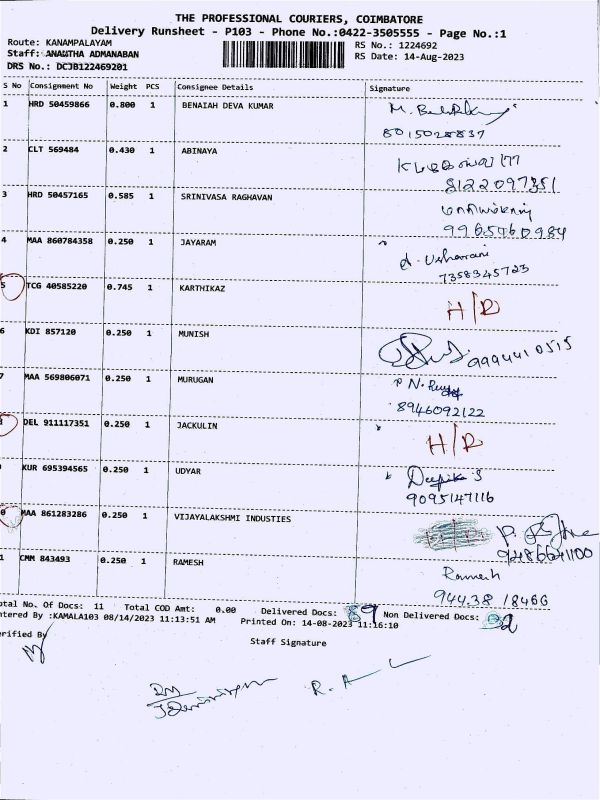 THE PROFESSIONAL COURIERS, COIMBATORE
Delivery Runsheet - P103 - Phone No.:0422-3505555 - Page No.:1
Route: KANAMPALAYAM RS No.: 1224692
Staff: ADMANABAN RS Date: 14-Aug-2023
DRS No.: DCJB122469201
S No Consignment No Weight PCS Consignee Details Signature
1 HRD 50459866 0.800 1 BENAIAH DEVA KUMAR
8015028837
2 CLT 569484 0.430 1 ABINAYA
8122097351
3 HRD 50457165 0.585 1 SRINIVASA RAGHAVAN
9965460984
4 MAA 860784358 0.250 1 JAYARAM d. Usharani
7358345723
5 TCG 40585220 0.745 1 KARTHIKAZ H/R
6 KDI 857120 0.250 1 MUNISH 9994410515
7 MAA 569806071 0.250 1 MURUGAN
8946092122
DEL 911117351 0.250 1 JACKULIN H/R
KUR 695394565 0.250 1 UDYAR Deepika S
9095147116
0 MAA 861283286 0.250 1 VIJAYALAKSHMI INDUSTIES
1 CMM 843493 0.250 1 RAMESH Ramesh
94438 18466
otal No. Of Docs: 11 Total COD Amt: 0.00 Delivered Docs: 9 Non Delivered Docs: 2
ntered By :KAMALA103 08/14/2023 11:13:51 AM Printed On: 14-08-2023 11:16:10
erified By
Staff Signature